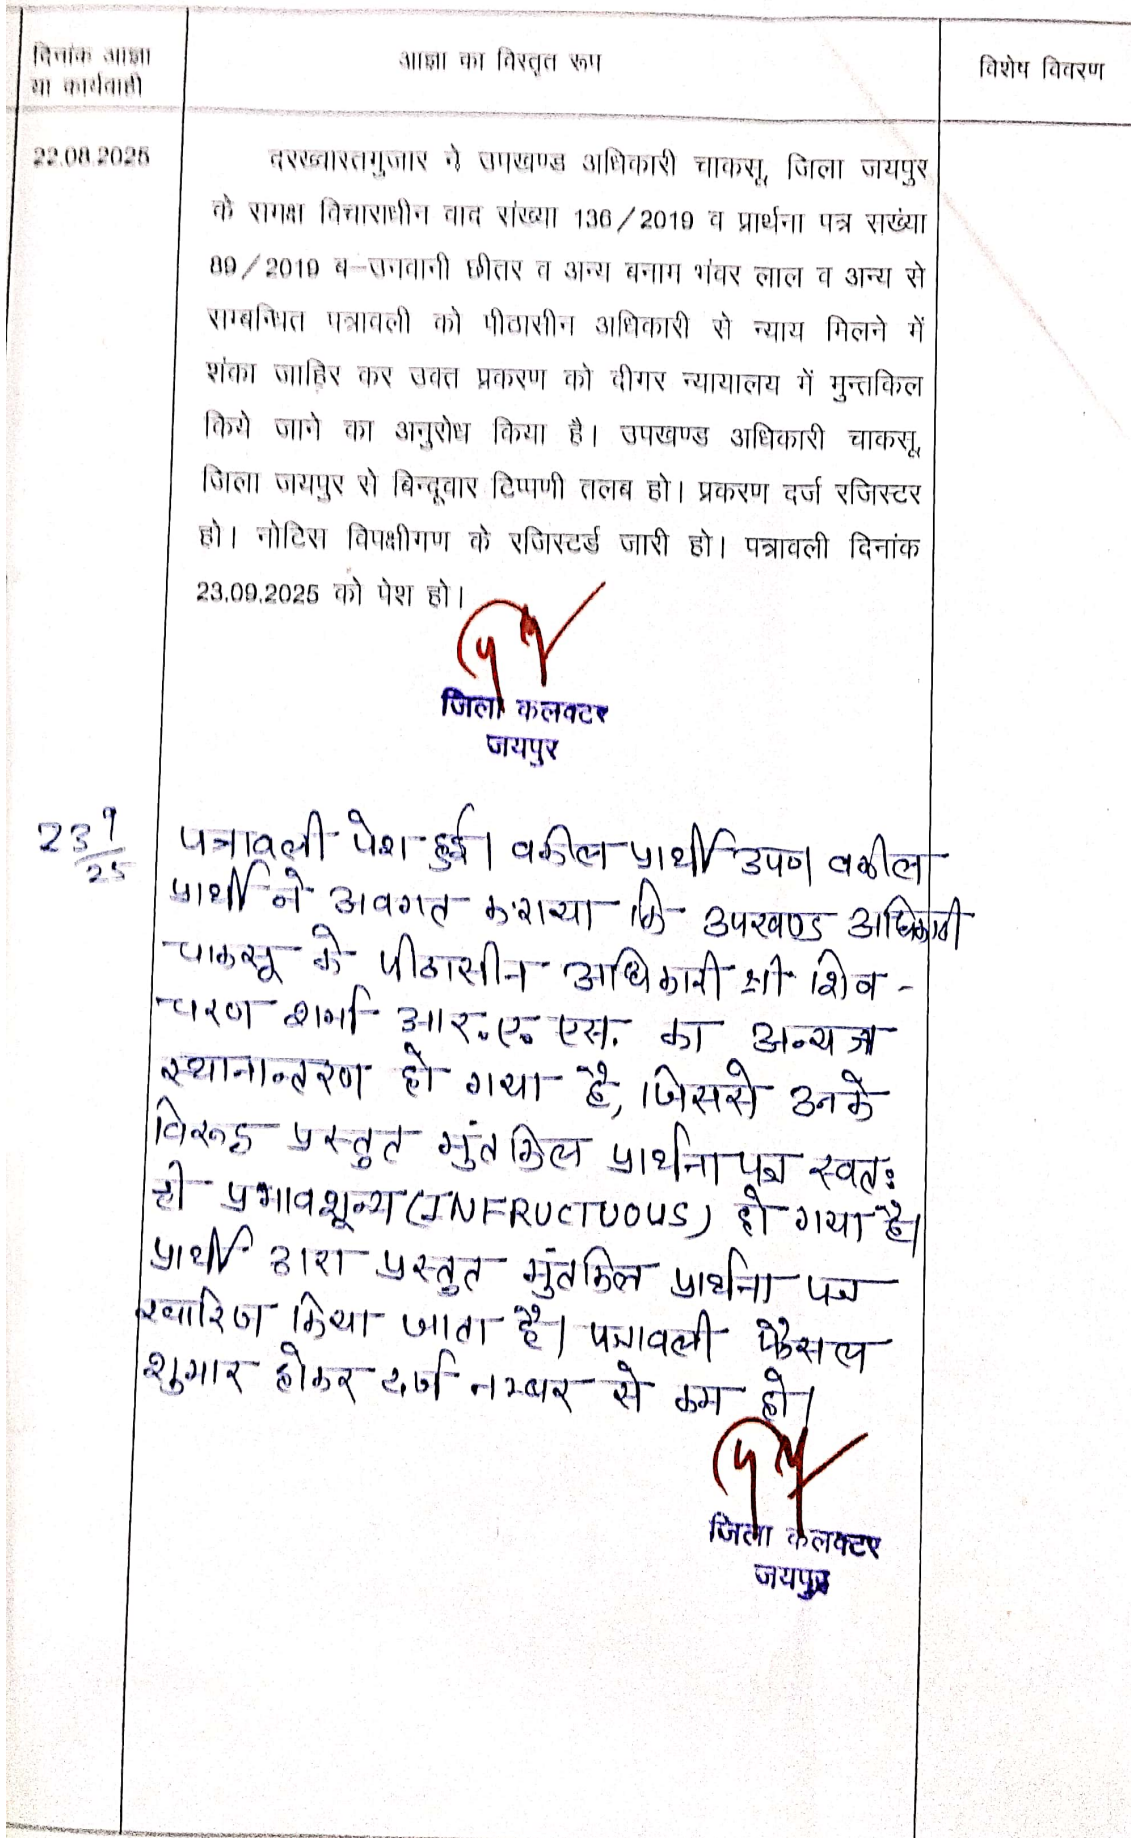 दिनांक आज्ञा
या कार्यवाही
आज्ञा का विस्तृत रूप
विशेष विवरण
22.08.2025
दरख्वास्तगुजार ने उपखण्ड अधिकारी चाकसू, जिला जयपुर
के समक्ष विचाराधीन वाद संख्या 136/2019 व प्रार्थना पत्र सख्ंया
89/2019 ब-उनवानी छीतर व अन्य बनाम भंवर लाल व अन्य से
सम्बन्धित पत्रावली को पीठासीन अधिकारी से न्याय मिलने में
शंका जाहिर कर उक्त प्रकरण को दीगर न्यायालय में मुन्तकिल
किये जाने का अनुरोध किया है। उपखण्ड अधिकारी चाकसू,
जिला जयपुर से बिन्दूवार टिप्पणी तलब हो। प्रकरण दर्ज रजिस्टर
हो। नोटिस विपक्षीगण के रजिस्टर्ड जारी हो। पत्रावली दिनांक
23.09.2025 को पेश हो।
जिला कलक्टर
जयपुर
23 9/25
पत्रावली पेश हुई। वकील प्रार्थी उप० वकील
प्रार्थी ने अवगत कराया कि उपखण्ड अधिकारी
चाकसू के पीठासीन अधिकारी श्री शिव-
चरण शर्मा आर.ए.एस. का अन्यत्र
स्थानान्तरण हो गया है, जिससे उनके
विरूद्ध प्रस्तुत मुंतकिल प्रार्थना पत्र स्वतः
ही प्रभावशून्य (INFRUCTUOUS) हो गया है।
प्रार्थी द्वारा प्रस्तुत मुंतकिल प्रार्थना पत्र
खारिज किया जाता है। पत्रावली फैसल
शुमार होकर दर्ज नम्बर से कम हो।
जिला कलक्टर
जयपुर